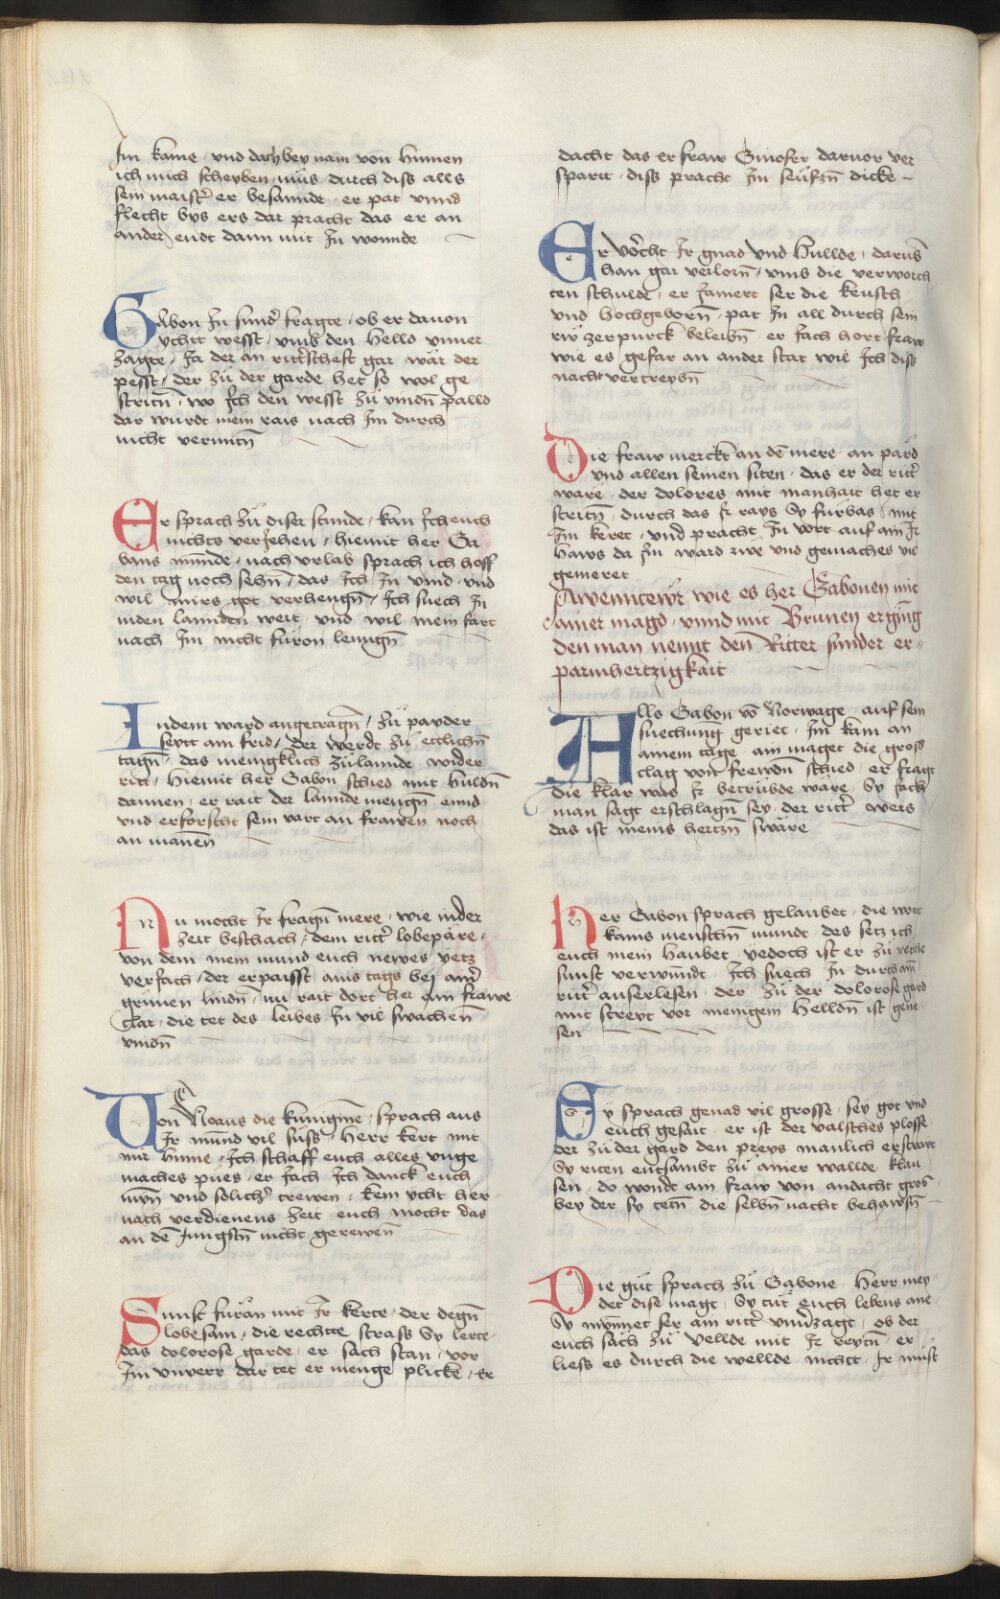 Im kame · vnd dachbey nam von hinnen
ich mich scheyben · mus durch diss alls
sein maist̃ er besannde · er pat vnnd
flecht bys ers dar pracht das er an
ander endt dann mit In wonnde
Gabon In sunde fragte · ob er dauon
ychtt wesst · vmb den Helld vnuer
zagte · Ja der an rittscheft gar war der
pesst · der zu der garde het so wol ge
stritn̄ · wo Ich den wesst zu vindn̄ palld
dar wurdt mein rais nach Im durch
nicht vermitn̄
Er sprach zu diser stunde · kan Ich euch
nichts veriehen · hiemit her Ga
bans munde · nach vrlab sprach ich hoff
den tag noch sehn̄ · das Ich In vind · vnd
wil mirs got verhengn̄ · Ich suech In
inden lannden weit · vnd wil mein fart
nach Im nicht furon lenngn̄
Indem ward angetragn̄ · zu payder
seytt am frid · der werdt zu ettlichn̄
tagn̄ · das menigklich zulannde wider
ritt · hiemit her Gabon schied mit huldn̄
dannen · er rait der lannde mengn̄ ennd
vnd erforscht sein vart an frawen noch
an mannen
Nu mocht Ir fragn̄ mere · wie inder
zeit beschach · dem ritt̃ lobepäre ·
von dem mein mund euch newes yetz
veriach · der erpaisst ains tags bej ain̄
grunen lindn̄ · nu rait dort her ain frawe
clar · die tet des leibes In vil swachen̄
vindn̄
Von Noaus die kunigine · sprach aus
Ir mund vil suss · Herr kert mit
mir hinne · Ich schaff euch alles vnge
maches pues · er iach Ich danck euch
myn̄ vnd solich̃ trewen · kem ycht her
nach verdienens zeit euch mocht das
an dē Jungstn̄ nicht gerewen̄
Sunst furan mit Ir kerte · der degn̄
lobesam · die rechte strass Sy lerte ·
das dolorose garde · er sach stan · vor
Im vnuerr dar tet er menge plicke · Er
dacht das er fraw Ginofer daruor ver
sparrt · diss pracht In seufzn̄ dicke –
Er vorcht Ir gnad vnd Hullde · darumb
han gar verlorn̄ · vmb die verworch
ten schulde · er Jamert ser die keusch
vnd hochgeborn̄ · pat In all durch sein
rw zerpurck beleibn̄ · er iach hort fraw
wie es gefar an ander stat wil Ich diss
nacht vertreybn̄
Die fraw merckt an dē mere · an pärd
vnd allen seinen siten · das er der ritt̃
ware · der dolores mit manhait het er
stritn̄ · durch das Ir rays Sy furbas mit
Im keret · vnd pracht In vort auf ain Ir
haws da Im ward rwe vnd gemaches vil
gemeret
Awenntewr wie es her Gabonen mit
ainer magd · vnnd mit Brunen erging
den man nennt den Ritter sunder er-
parmhertzigkait
Alls Gabon vō Norwage · auf sein
suechung geriet · Im kam an
ainem tage · ain maget die gross
clag von frewdn̄ schied · er fragt
die klar was Ir betrubde ware · Sy iach
man sagt erschlagn̄ sey · der ritt̃ wers
das ist meins hertzn̄ swäre
Her Gabon sprach gelaubet · die wort
kains menschn̄ mundt · des setz ich
euch mein haubet · yedoch ist er zu rechte
sunst verwundt · Ich suech In durch ain
ritt̃ auserlesen · der zu der dolorose gard
mit streyt vor menigem Helldn̄ ist gene
sen
Sy sprach genad vil grosse · sey got vnd
euch gesait · er ist der valsches plosse ·
der zu der gard den preys manlich erstrait
Sy riten entsambt zu ainer wallde klau
sen · do wondt ain fraw von andacht gros
bey der sy tetn̄ die selbn̄ nacht behawsn̄
Die gut sprach zu Gabone · Herr mey
det dise magt · Sy tut euch lebens ane ·
Sy mynnet ser ain ritt̃ vnuerzagt · ob der
euch sach zu vellde mit Ir reytn̄ · er
liess es durch die wellde nicht · Ir must